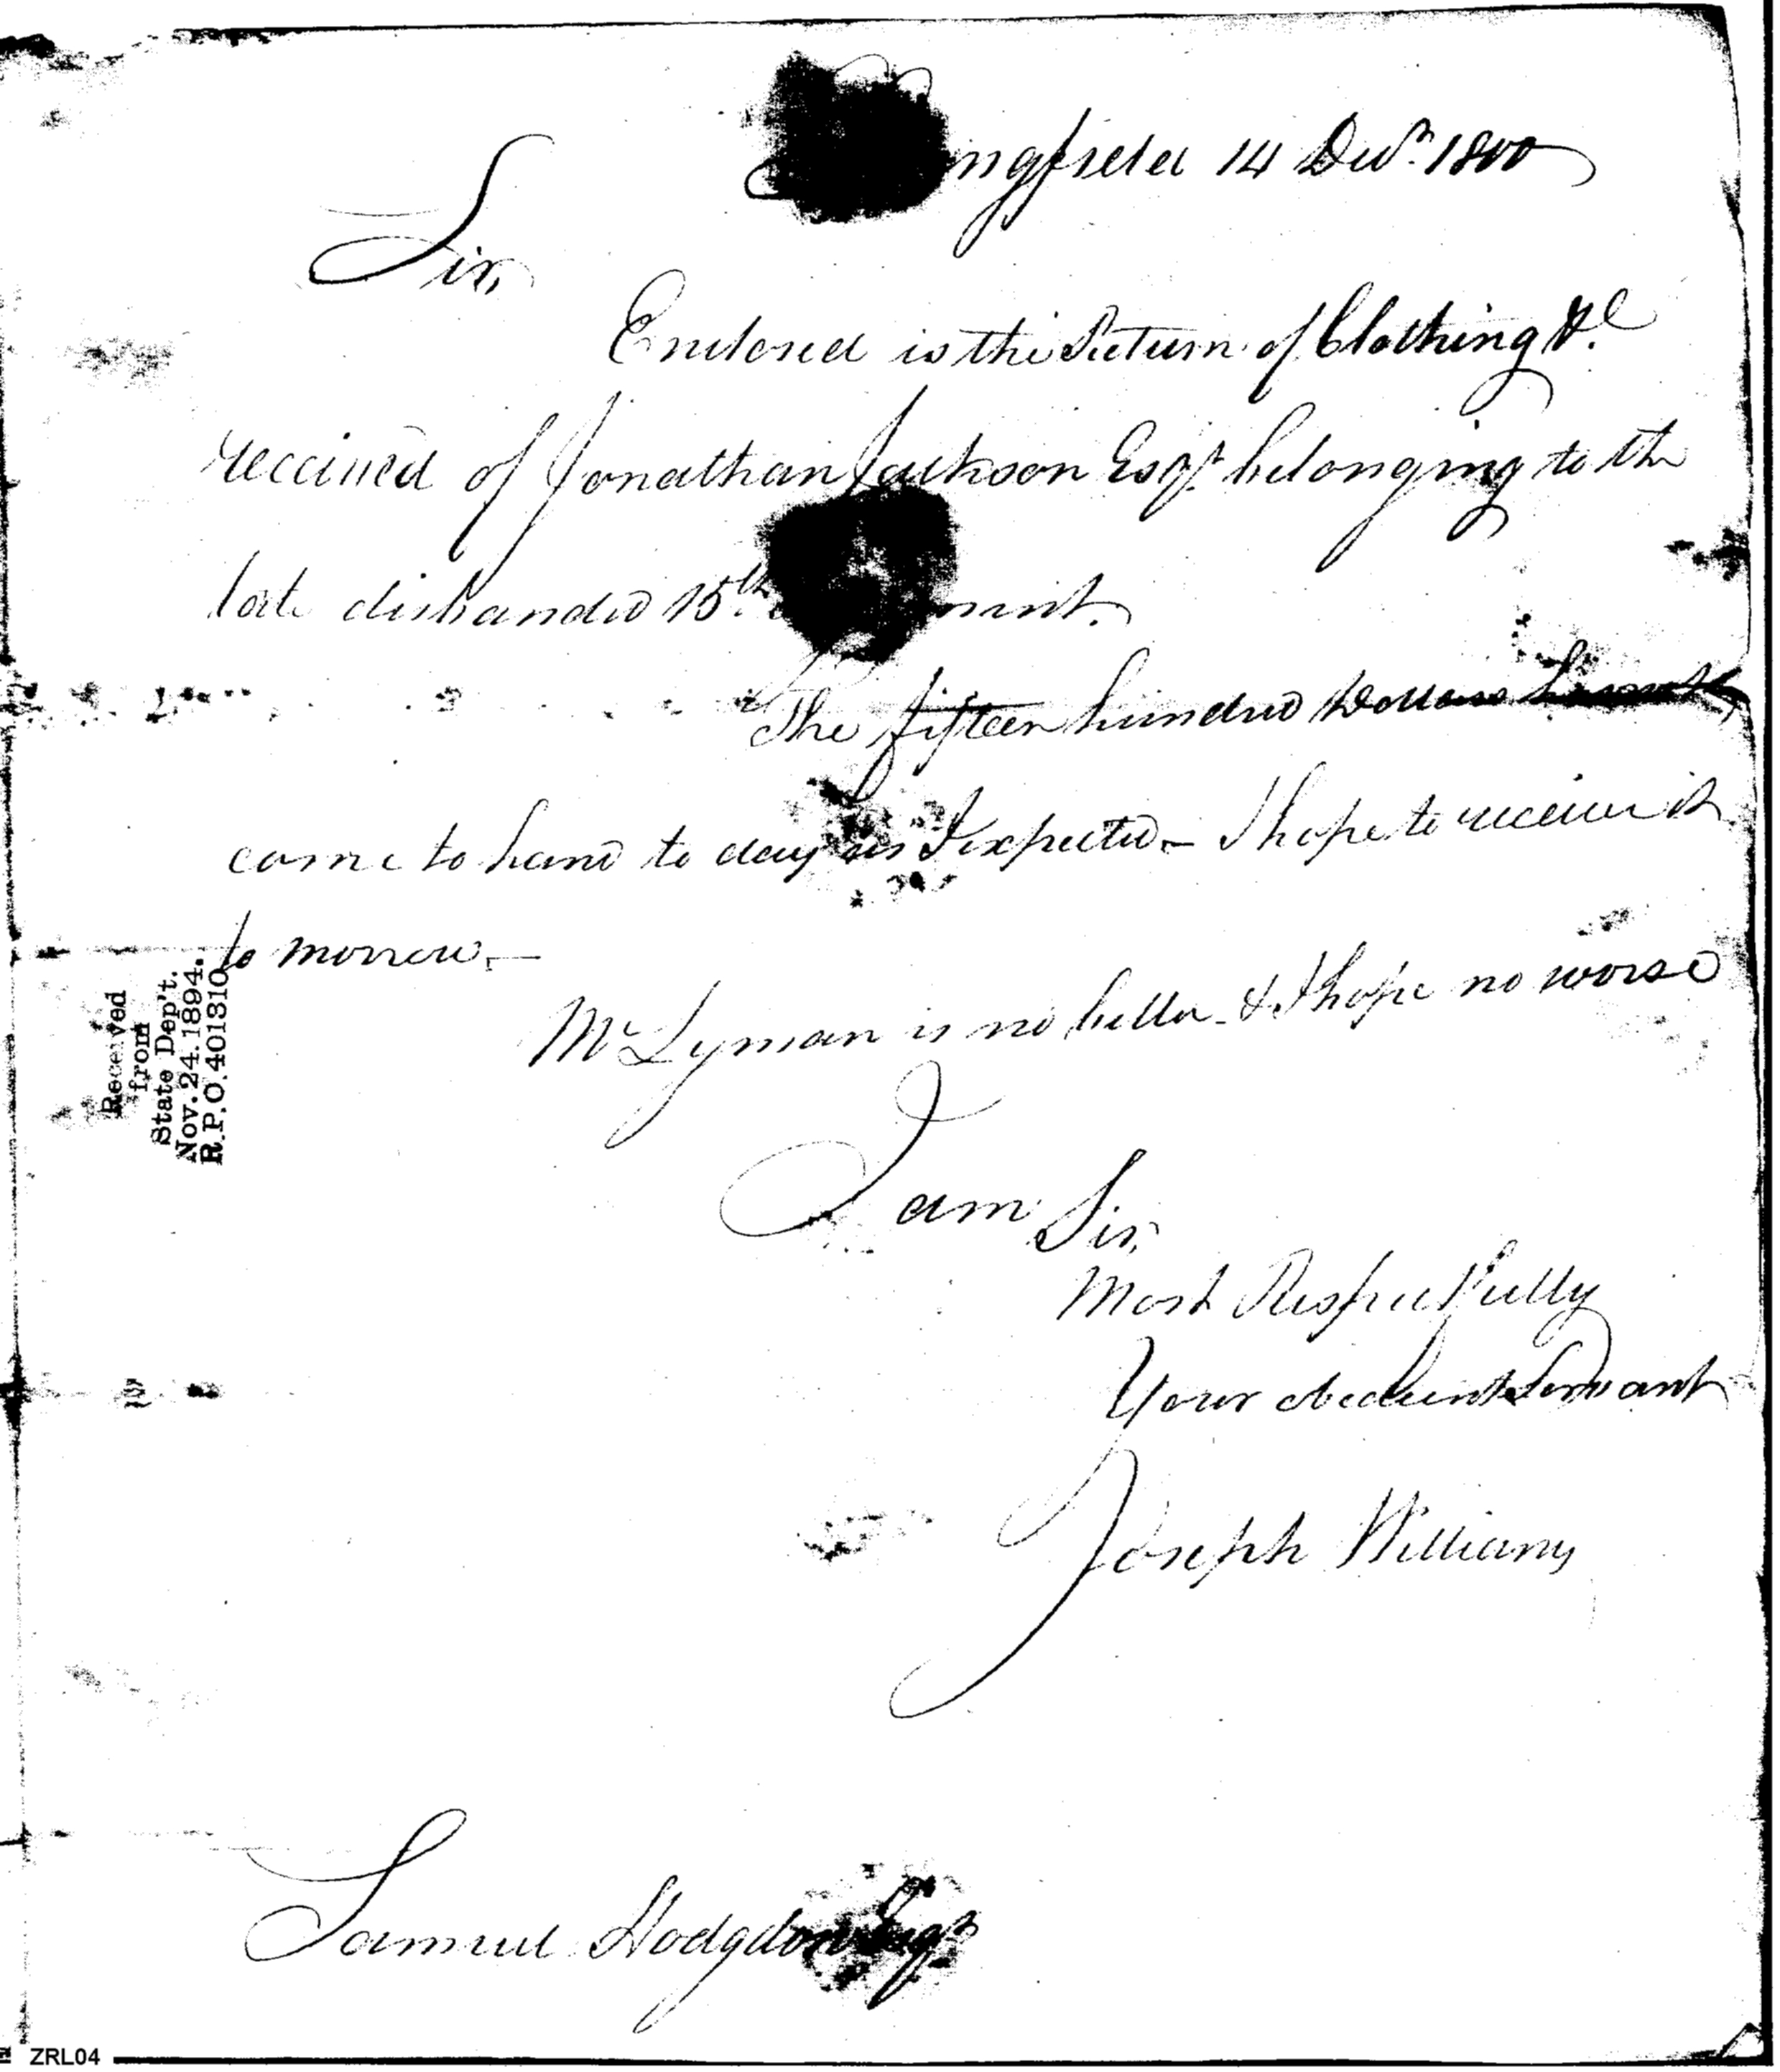 ngfield 14 Decr. 1800
Sir,
Enclosed is the Return of Clothing &c
received of Jonathan Jackson Esqr. belonging to the
late disbanded 15th ment.
The fifteen hundred Dollars
come to hand to day as I expected – I hope to receive it
to morrow. –
Mr Lyman is no better - & I hope no worse
I am Sir,
Most Respectfully
Your obedient Servant
Joseph Williams
Samuel Hodgdon Esqr
Received
from
State Dep't.
Nov. 24. 1894.
R.P.O. 401310
ZRL04